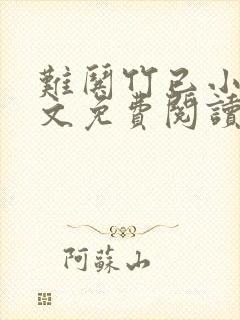 難關竹已小
文免費閱讀
阿蘇山